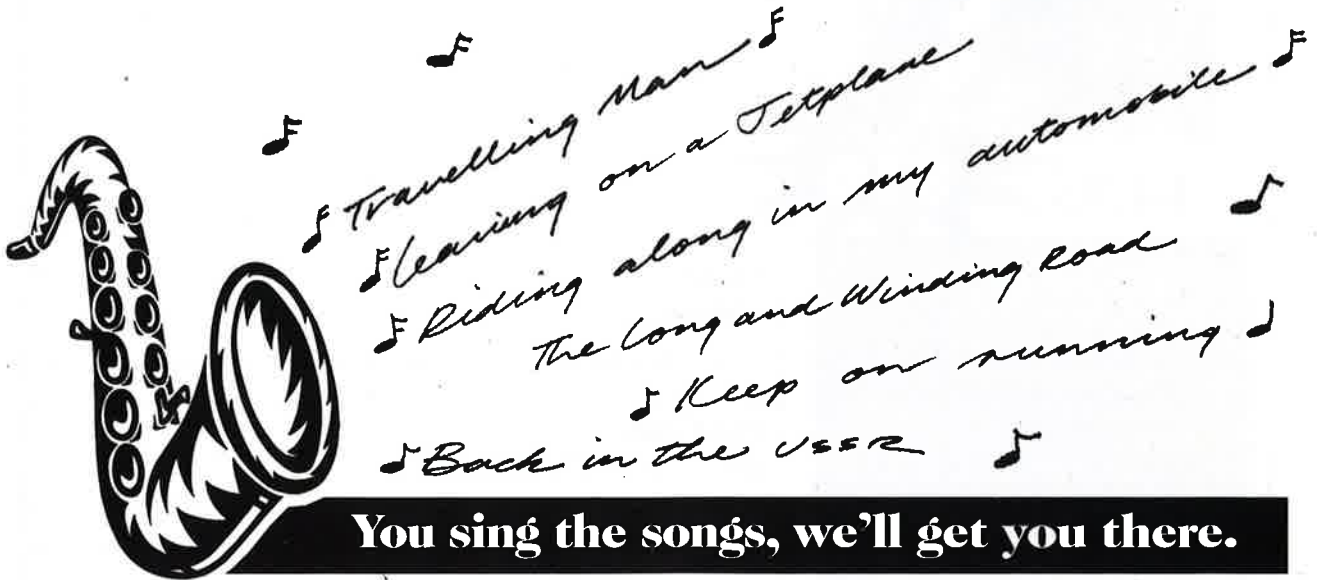 Travelling Man
Leaving on a Jetplane
Riding along in my automobile
The Long and Winding Road
Keep on running
Back in the USSR
You sing the songs, we'll get you there.